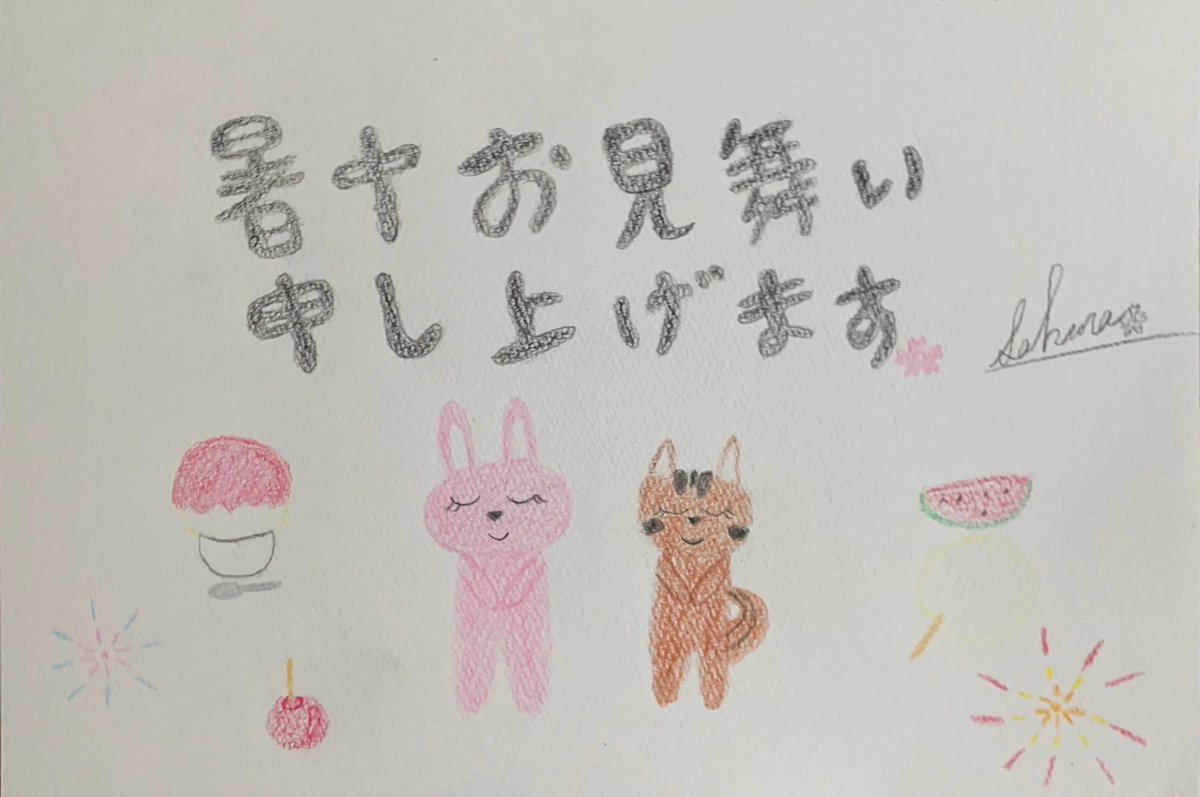 暑中お見舞い
申し上げます
Sakura